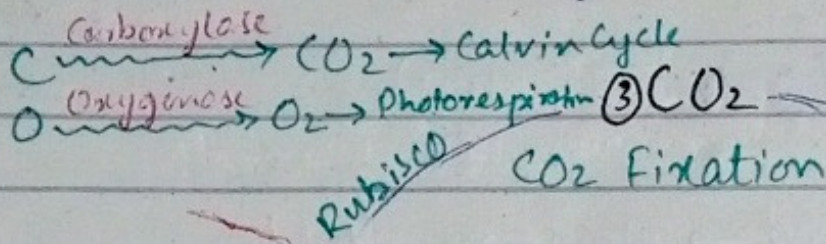 Carboxylase
C → CO2 → Calvin Cycle
Oxyginase
O → O2 → Photorespiratn ③ CO2
Rubisco
CO2 Fixation